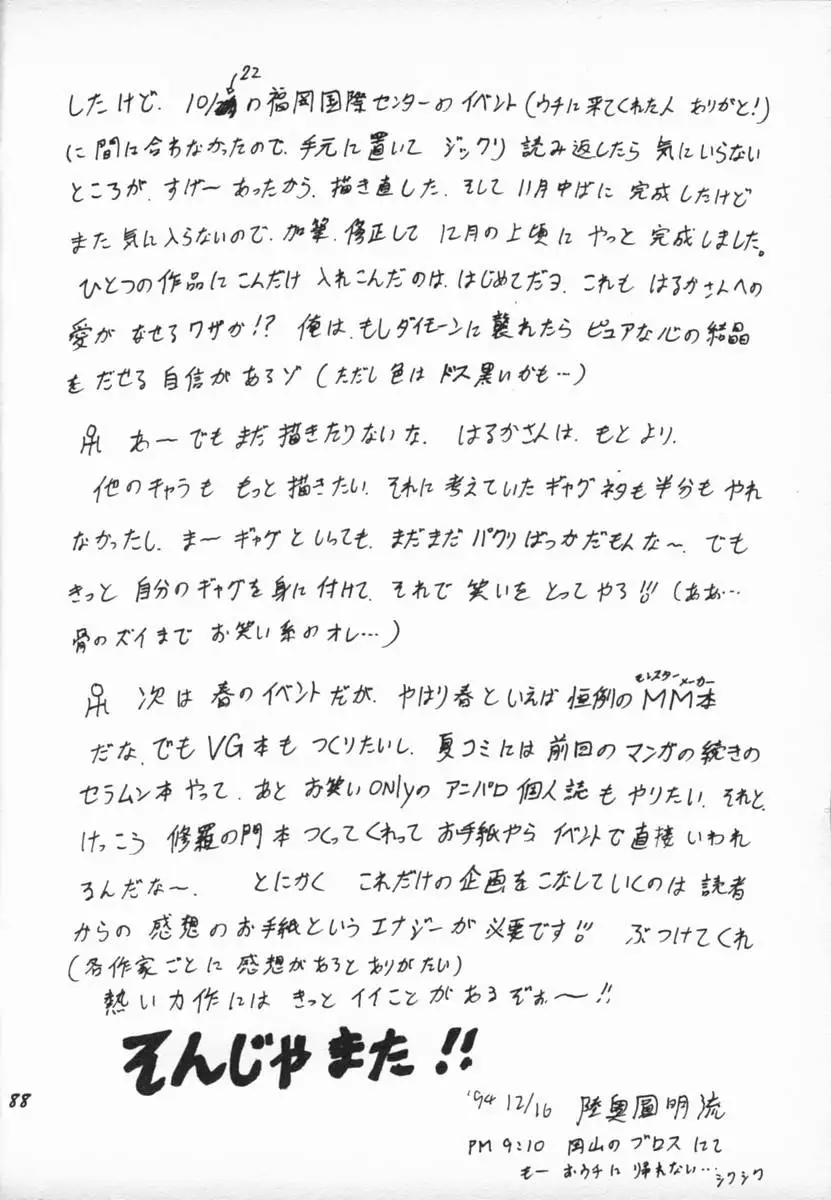 22
したけど、10/の福岡国際センターのイベント(ウチに来てくれた人 ありがと!)
に間に合わなかったので、手元に置いて ジックリ 読み返したら 気にいらない
ところが、すげー あったから、描き直した。そして 11月中ばに 完成したけど
また 気に入らないので、加筆、修正して 12月の上頃に やっと 完成しました。
ひとつの作品に こんだけ 入れこんだのは、はじめてだヨ、これも はるかさんへの
愛が なせる ワザか!? 俺は、もしダイモーンに襲れたら ピュアな心の結晶
を だせる 自信が あるゾ (ただし色は ドス黒いかも…)
あーでもまだ 描きたりないな、はるかさんは、もとより、
他のキャラも もっと描きたい、それに 考えていた ギャグネタも 半分も やれ
なかったし、まー ギャグと いっても、まだまだ パクリばっかだもんな〜、でも
きっと 自分のギャグを 身に付けて、それで 笑いを とってやる!! (ああ…
骨のズイまで お笑い系の オレ…)
モンスター メーカー
次は 春のイベントだが、やはり春といえば 恒例の MM本
だな、でも VG本も つくりたいし、夏コミには 前回の マンガの続きの
セラムン本 やって、あと お笑いonlyの アニパロ 個人誌も やりたい、それと、
けっこう 修羅の門本 つくってくれって お手紙やら イベントで 直接 いわれ
るんだな〜、 とにかく これだけの企画を こなしていくのは 読者
からの 感想の お手紙という エナジーが 必要です!! ぶつけてくれ
(各作家ごとに 感想があると ありがたい)
熱い力作には きっと イイことが あるぞぉ〜!!
そんじゃ また!!
88
'94 12/16 陸奥圓明流
PM 9:10 岡山の ブロスにて
もー おウチに 帰れない… シクシク